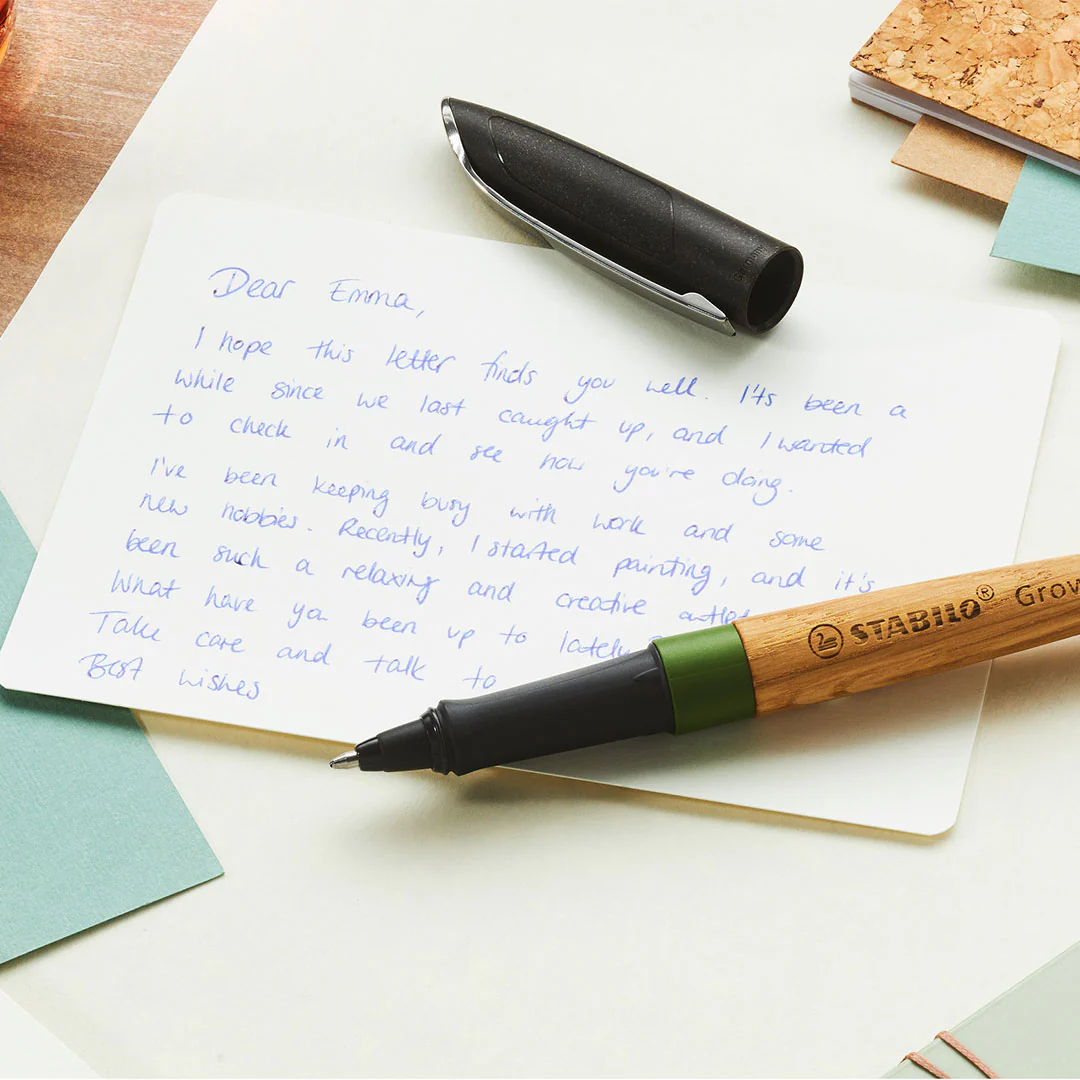 Dear Emma,
I hope this letter finds you well. It's been a
while since we last caught up, and I wanted
to check in and see how you're doing.
I've been keeping busy with work and some
new hobbies. Recently, I started painting, and it's
been such a relaxing and creative
What have you been up to lately
Take care and talk to
Best wishes
STABILO® Grow
Germany